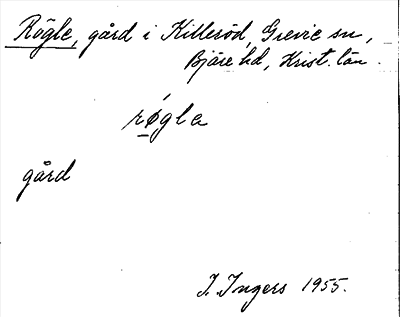 Rögle, gård i Killeröd, Grevie sn,
Bjäre hd, Krist. län.
rø̀gla
gård
I. Ingers 1955.